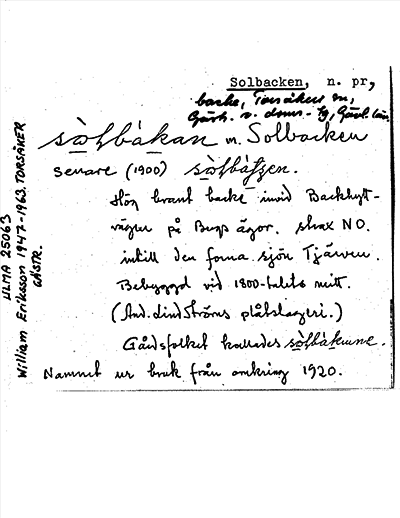 Solbacken, n. pr,
backe, Torsåkers sn,
Gästr. ö. doms- sg, Gävl. län
sòlbàkan m. Solbacken
senare (1900) sòlbàtjen.
Hög brant backe invid Backhytt-
vägen på Bergs ägor. strax NO.
intill den forna sjön Tjärven.
Bebyggd vid 1800-talets mitt.
(And. Lindströms plåtslageri.)
Gårdsfolket kallades sòlbàkarne.
Namnet ur bruk från omkring 1920.
ULMA 25063
William Eriksson 1947-1963. TORSÅKER
GÄSTR.